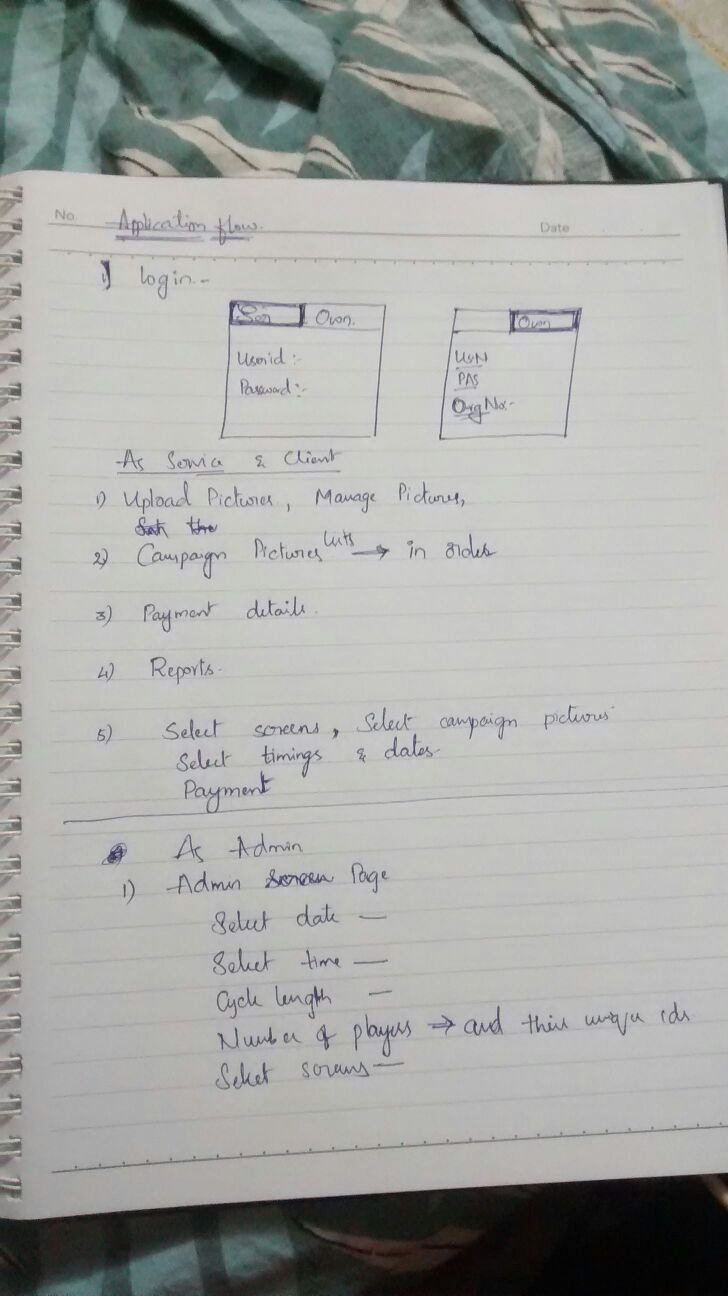 No.
Application flow.
Date
1) login:-
Ser Own.
Userid :-
Password :-
Own
UsN
PAS
Org No:-
As Service & Client
1) Upload Pictures, Manage Pictures,
2) Campaign Pictures lists → in order
3) Payment details.
4) Reports.
5) Select screens, Select campaign pictures
Select timings & dates.
Payment
As Admin
1) Admin Screen Page
Select date —
Select time —
Cycle length —
Number of players ⇒ and their unique ids
Select screens —